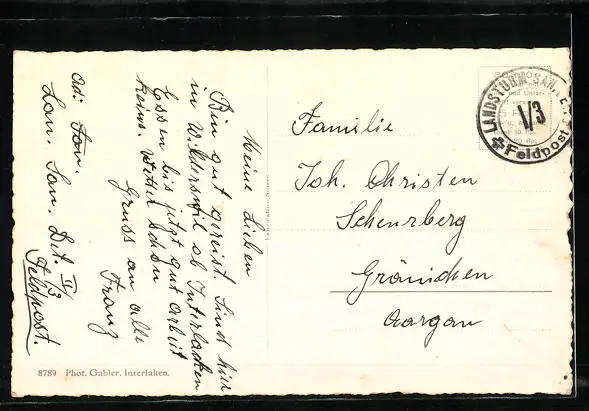 Meine Lieben
Bin gut gereist. Sind hier
in Wilderswil ob Interlaken
Essen bis jetzt gut Arbeit
keine. Wetter schön
Gruss an alle
Franz
Adr. Fam.
San. Det. IV
/3
Feldpost.
Familie
Joh. Christen
Scheurberg
Gränichen
Aargau
LANDSTURM SAN.
V/3
Feldpost
8789 Phot. Gabler. Interlaken.